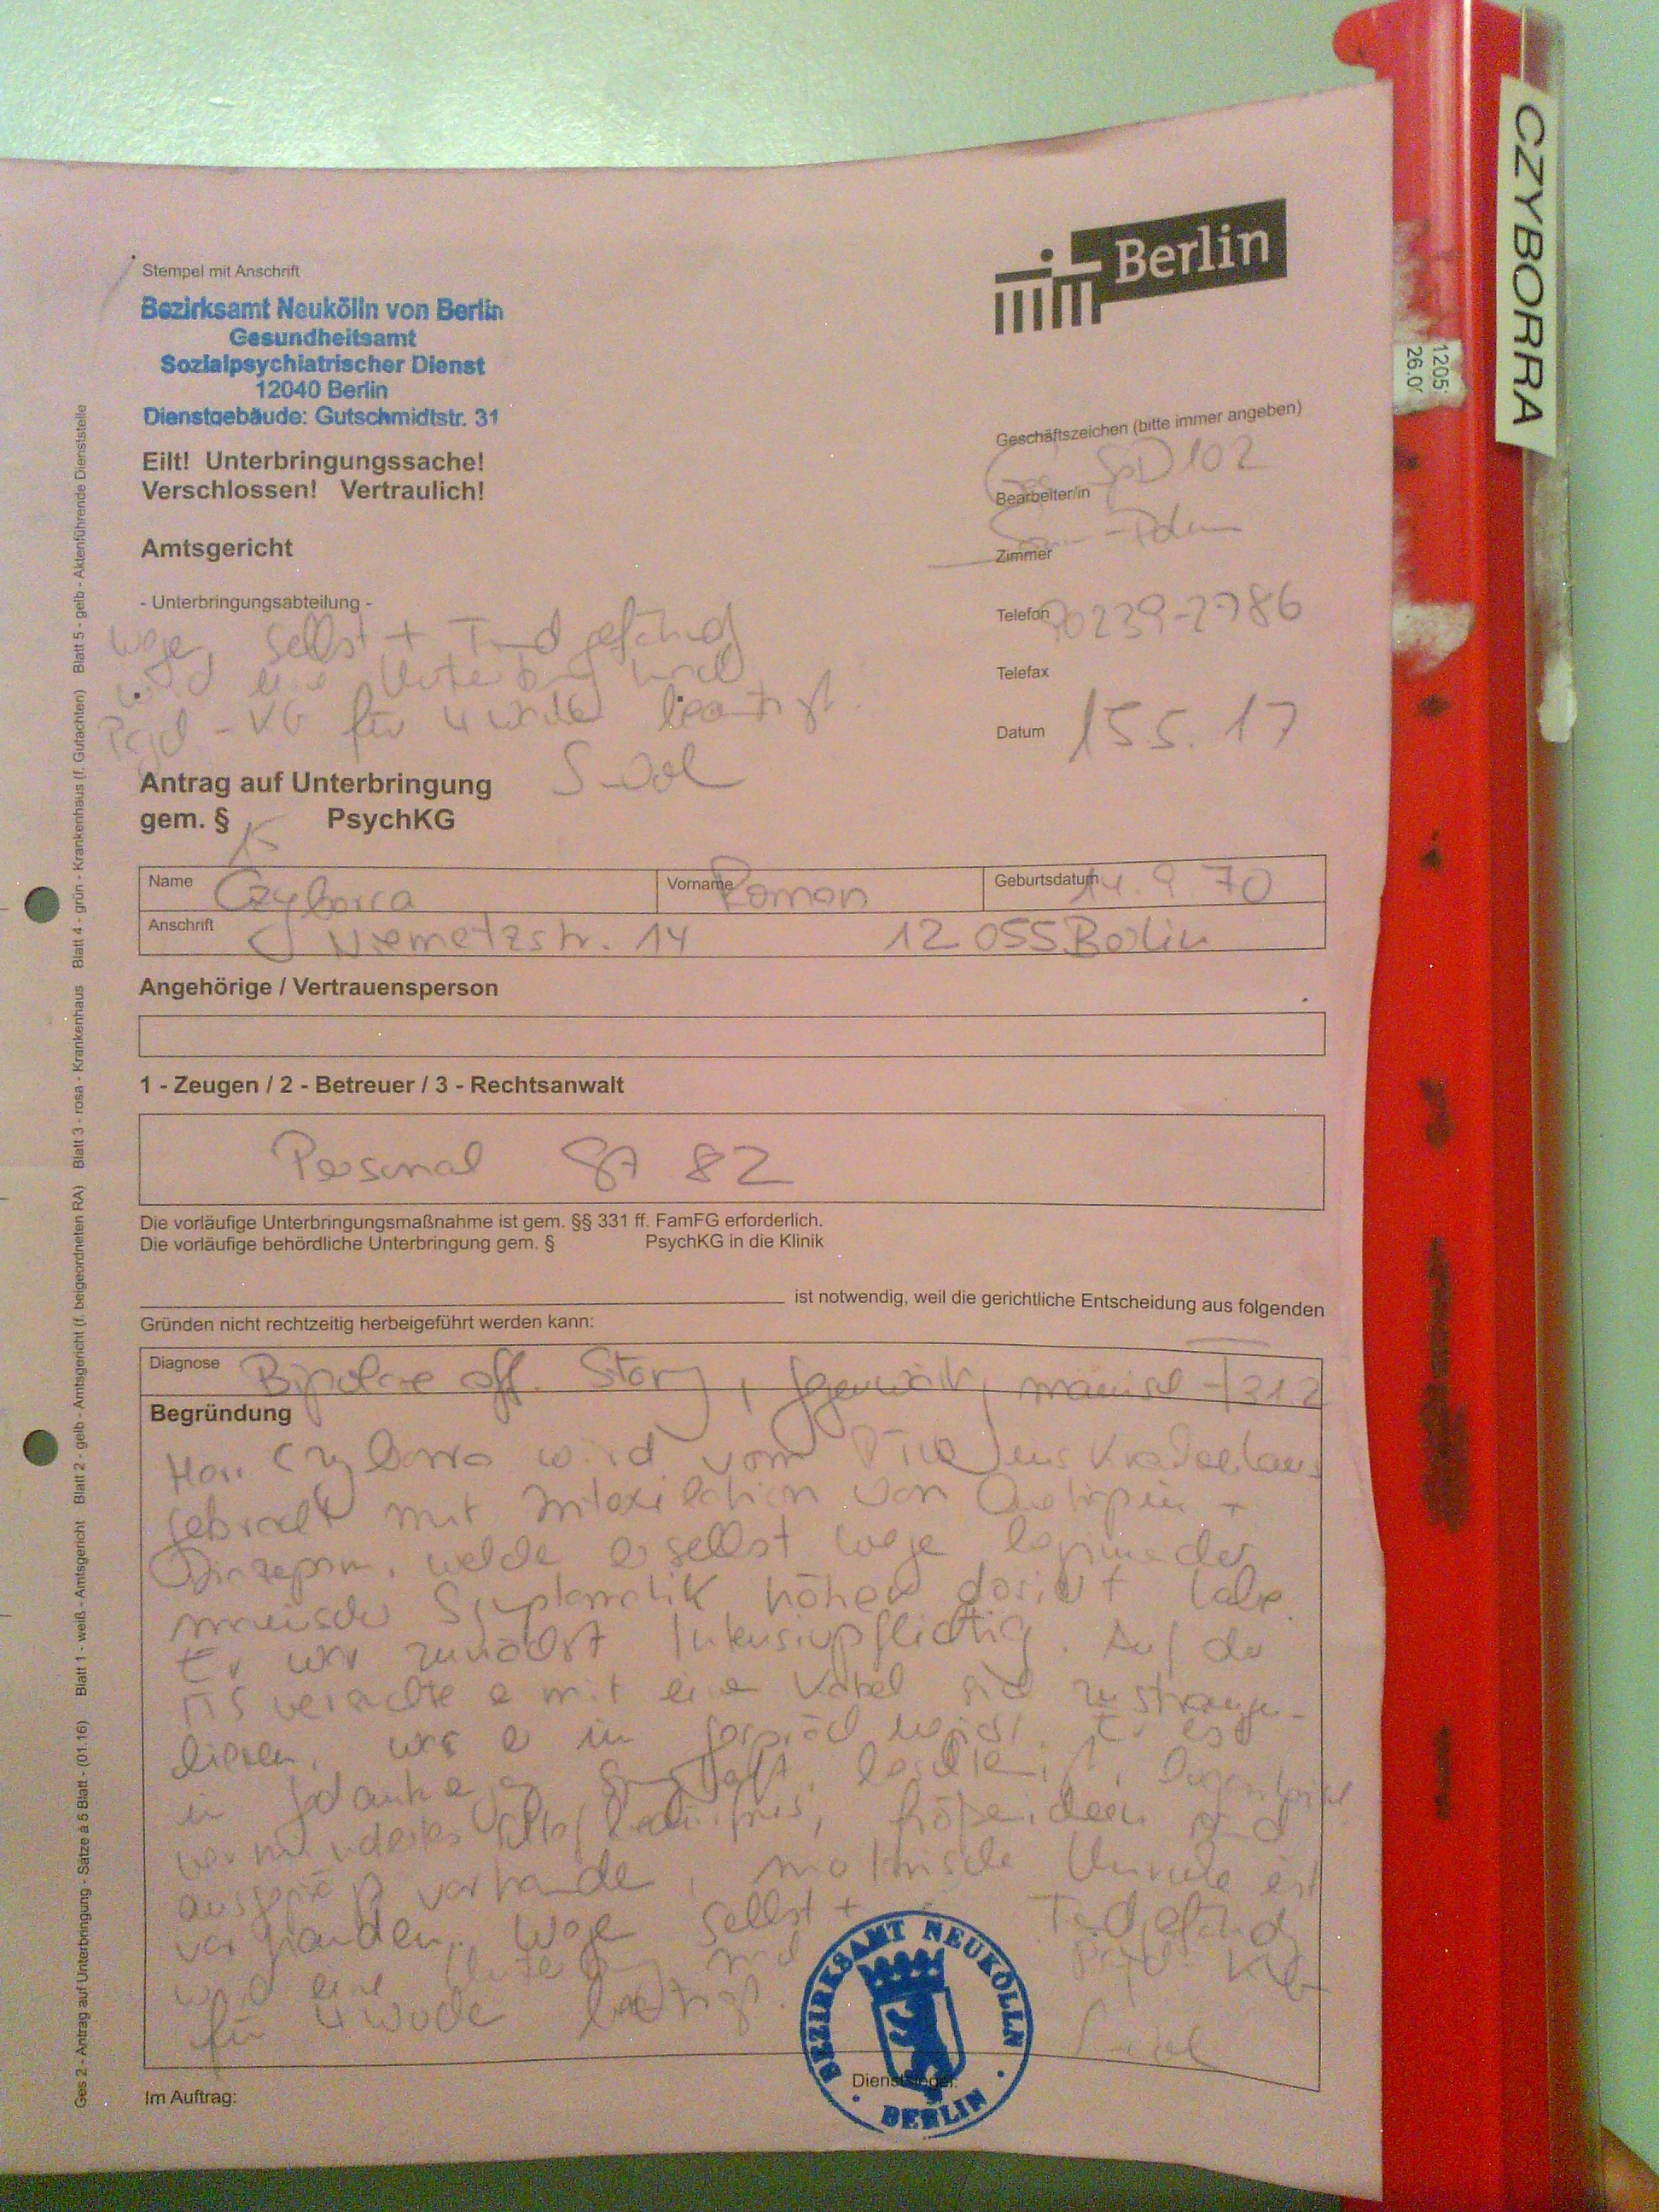 CZYBORRA
Berlin
Stempel mit Anschrift
Bezirksamt Neukölln von Berlin
Gesundheitsamt
Sozialpsychiatrischer Dienst
12040 Berlin
Dienstgebäude: Gutschmidtstr. 31
Eilt! Unterbringungssache!
Verschlossen! Vertraulich!
Geschäftszeichen (bitte immer angeben)
SpD 102
Bearbeiter/in
Amtsgericht
Zimmer
- Unterbringungsabteilung -
Telefon 90239-2786
Telefax
Datum 15.5.17
wege selbst +
wird eine
für 4 Woche
Antrag auf Unterbringung
gem. § 15 PsychKG
Name Czyborra Vorname Roman Geburtsdatum 14.9.70
Anschrift Niemetzstr. 14 12055 Berlin
Angehörige / Vertrauensperson
1 - Zeugen / 2 - Betreuer / 3 - Rechtsanwalt
Personal 82
Die vorläufige Unterbringungsmaßnahme ist gem. §§ 331 ff. FamFG erforderlich.
Die vorläufige behördliche Unterbringung gem. § PsychKG in die Klinik
ist notwendig, weil die gerichtliche Entscheidung aus folgenden
Gründen nicht rechtzeitig herbeigeführt werden kann:
Diagnose Bipolare aff. Störg, manisch F31.2
Begründung
Herr Czyborra wird vom ins Krankenhaus
gebracht mit Intoxikation von +
Diazepam, welche er selbst wege beginnender
manischer Symptomatik höher dosiert habe.
Er war zunächst intensivpflichtig. Auf der
ITS versuchte er mit eine Kabel sich zu strangu-
lieren, was er im Gespräch Er ist
in beschleunigt,
vermindertes Schlafbedürfnis, Größenideen sind
ausgeprägt vorhande, motorische Unruhe ist
vorhanden. Wege selbst +
wird eine
für 4 Woche
Im Auftrag:
Dienstsiegel:
BEZIRKSAMT NEUKÖLLN
BERLIN
Ges 2 - Antrag auf Unterbringung - Sätze à 5 Blatt - (01.16) Blatt 1 - weiß - Amtsgericht Blatt 2 - gelb - Amtsgericht (f. beigeordneten RA) Blatt 3 - rosa - Krankenhaus Blatt 4 - grün - Krankenhaus (f. Gutachten) Blatt 5 - gelb - Aktenführende Dienststelle